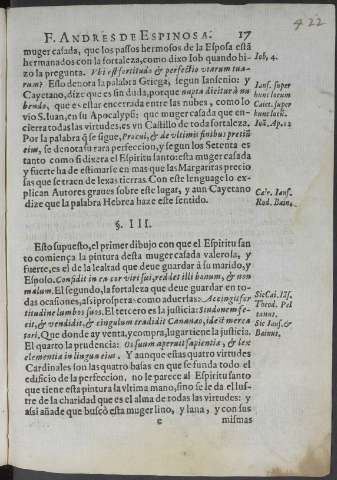 422
F. ANDRES DE ESPINOSA. 17
muger casada, que los passos hermosos de la Esposa està
hermanados con la fortaleza, como dixo Iob quando hi-
zo la pregunta. Vbi est fortitudo & perfectio viarum tua-
rum? Esso denota la palabra Griega, segun Iansenio: y
Cayetano, dize que es sin duda, porque nupta dicitur à nu-
bendo, que es estar encerrada entre las nubes, como lo
vio S. Iuan, en su Apocalypsi: que muger casada que en-
cierra todas las virtudes, es vn Castillo de toda fortaleza.
Por la palabra q̃ se sigue, Procul, & de vltimis finibus pretiũ
eius, se denota su rara perfeccion, y segun los Setenta es
tanto como si dixera el Espiritu santo: esta muger casada
y fuerte ha de estimarse en mas que las Margaritas precio
sas que se traen de lexas tierras. Con este lenguage lo ex-
plican Autores graues sobre este lugar, y aun Cayetano
dize que la palabra Hebrea haze este sentido.
Iob, 4.
Ians. super
hunc locum
Caiet. super
hunc locũ.
Ioã, Ap. 12
Ians.
Rod. Bain.
§. III.
Esto supuesto, el primer dibujo con que el Espiritu san
to comiença la pintura desta muger casada valerosa, y
fuerte, es el de la lealtad que deue guardar à su marido, y
Esposo. Confidit in ea cor viri sui, reddet illi bonum, & non
malum. El segundo, la fortaleza que deue guardar en to-
das ocasiones, assi prosperas como aduersas: Accingit for
titudine lumbos suos. El tercero es la justicia: Sindonem fe-
cit, & vendidit, & cingulum tradidit Cananæo, id est merca
tori. Que donde ay venta, y compra, lugar tiene la justicia.
El quarto la prudencia: Os suum aperuit sapientia, & lex
clementiæ in lingua eius. Y aunque estas quatro virtudes
Cardinales son las quatro basas en que se funda todo el
edificio de la perfeccion, no le parece al Espiritu santo
que tiene esta pintura la vltima mano, sino se le da el lus-
tre de la charidad que es el alma de todas las virtudes: y
assi añade que buscò esta muger lino, y lana, y con sus
Sic Cai. Iãs.
Theod. Pel
tanus.
Sic Ians. &
Bainus.
c mismas